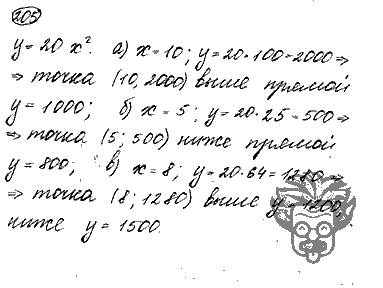 205
y = 20 x². а) x = 10; y = 20·100 = 2000 ⇒
⇒ точка (10, 2000) выше прямой
y = 1000; б) x = 5; y = 20·25 = 500 ⇒
⇒ точка (5; 500) ниже прямой
y = 800; в) x = 8; y = 20·64 = 1280 ⇒
⇒ точка (8; 1280) выше y = 1200,
ниже y = 1500.